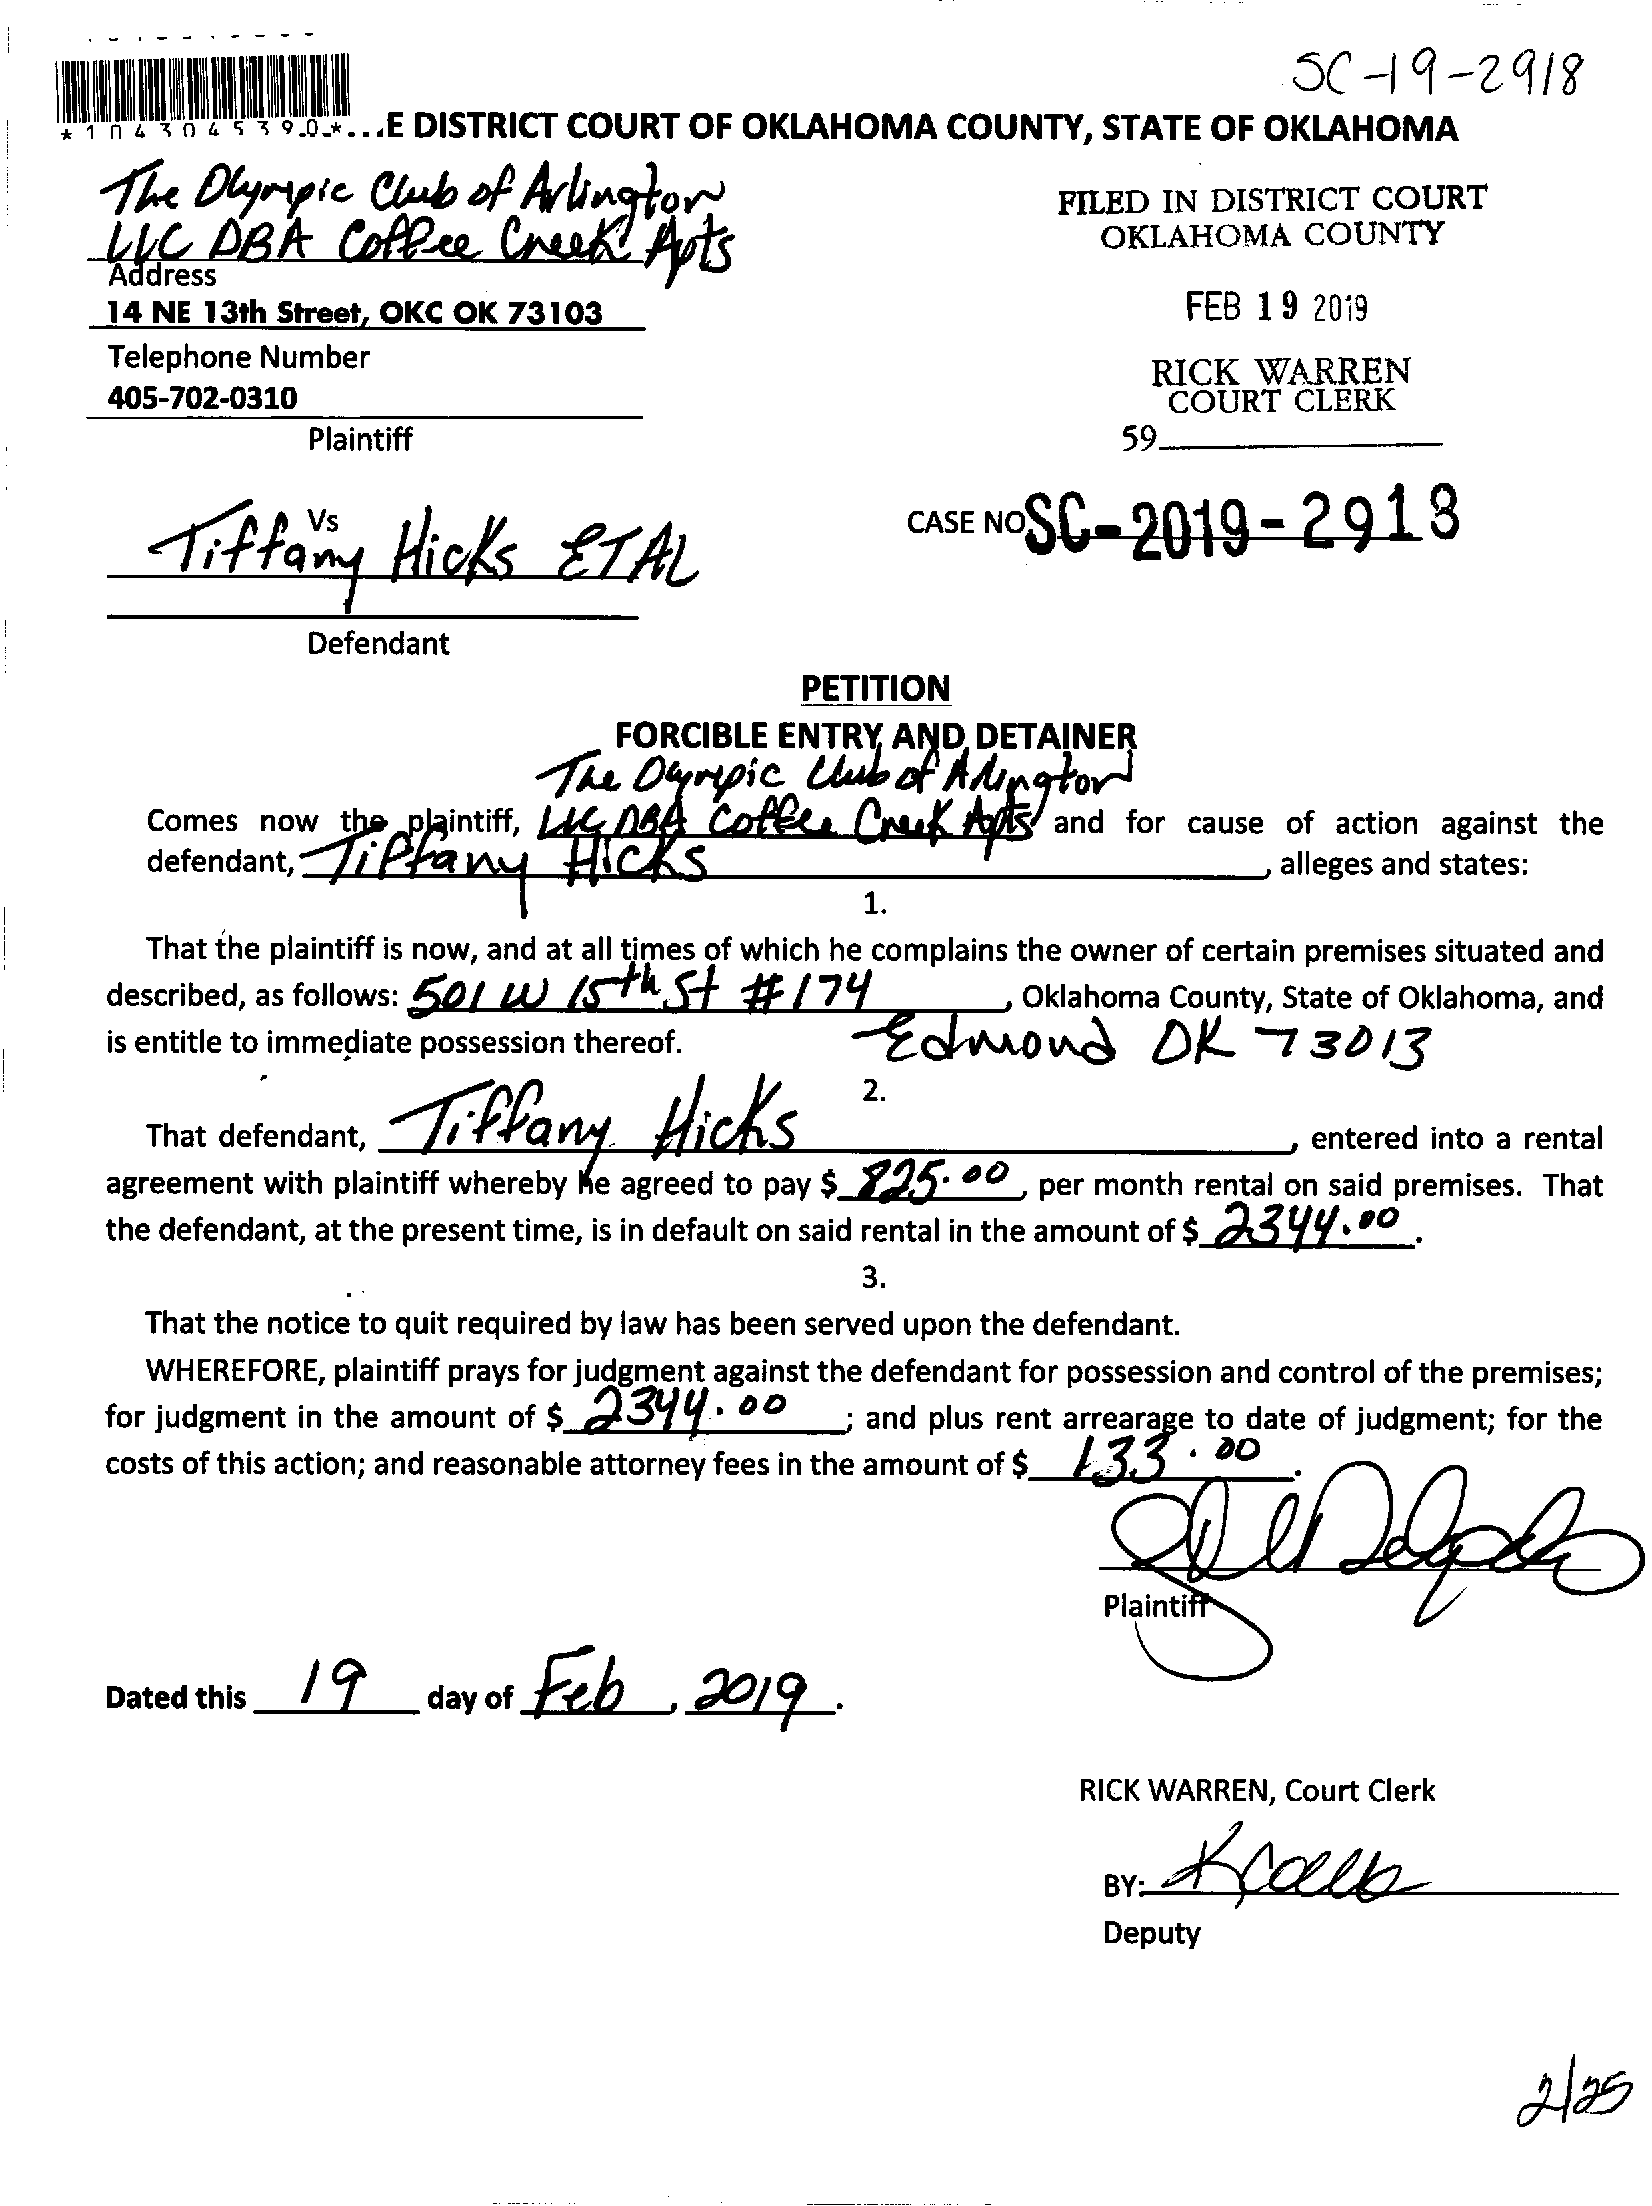 SC-19-2918
*1043045390*...E DISTRICT COURT OF OKLAHOMA COUNTY, STATE OF OKLAHOMA
The Olympic Club of Arlington
LLC DBA Coffee Creek Apts
Address
14 NE 13th Street, OKC OK 73103
Telephone Number
405-702-0310
Plaintiff
FILED IN DISTRICT COURT
OKLAHOMA COUNTY
FEB 19 2019
RICK WARREN
COURT CLERK
59
Vs
Tiffany Hicks ETAL
Defendant
CASE NO SC-2019-2918
PETITION
FORCIBLE ENTRY AND DETAINER
The Olympic Club of Arlington
Comes now the plaintiff, LLC DBA Coffee Creek Apts and for cause of action against the
defendant, Tiffany Hicks, alleges and states:
1.
That the plaintiff is now, and at all times of which he complains the owner of certain premises situated and
described, as follows: 501 W 15th St #174, Oklahoma County, State of Oklahoma, and
is entitle to immediate possession thereof. Edmond OK 73013
2.
That defendant, Tiffany Hicks, entered into a rental
agreement with plaintiff whereby he agreed to pay $ 825.00, per month rental on said premises. That
the defendant, at the present time, is in default on said rental in the amount of $ 2344.00.
3.
That the notice to quit required by law has been served upon the defendant.
WHEREFORE, plaintiff prays for judgment against the defendant for possession and control of the premises;
for judgment in the amount of $ 2344.00; and plus rent arrearage to date of judgment; for the
costs of this action; and reasonable attorney fees in the amount of $ 133.00.
Plaintiff
Dated this 19 day of Feb, 2019.
RICK WARREN, Court Clerk
BY:
Deputy
2/25